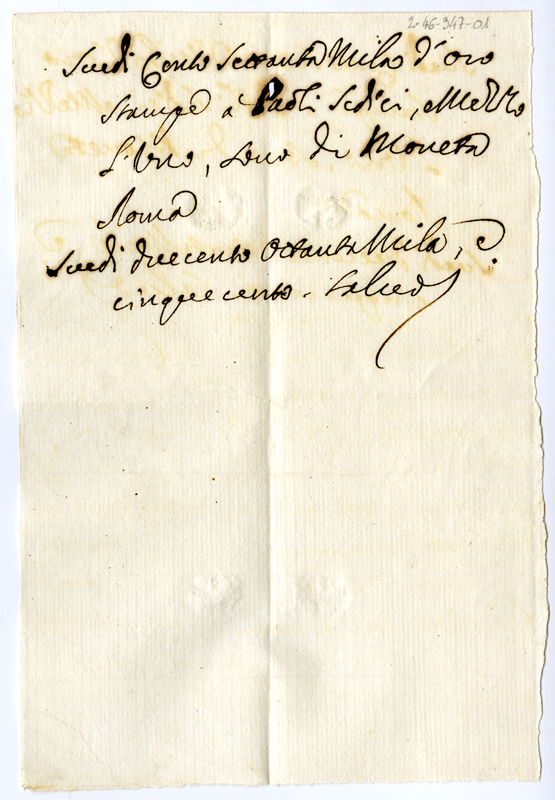 2-46-347-01
Scudi Cento Settanta Mila d'oro
stampe a Paoli Sedici, e Mezzo
l'Uno, sono di Moneta
Roma
Scudi duecento Ottanta Mila, e
cinquecento. Salvo